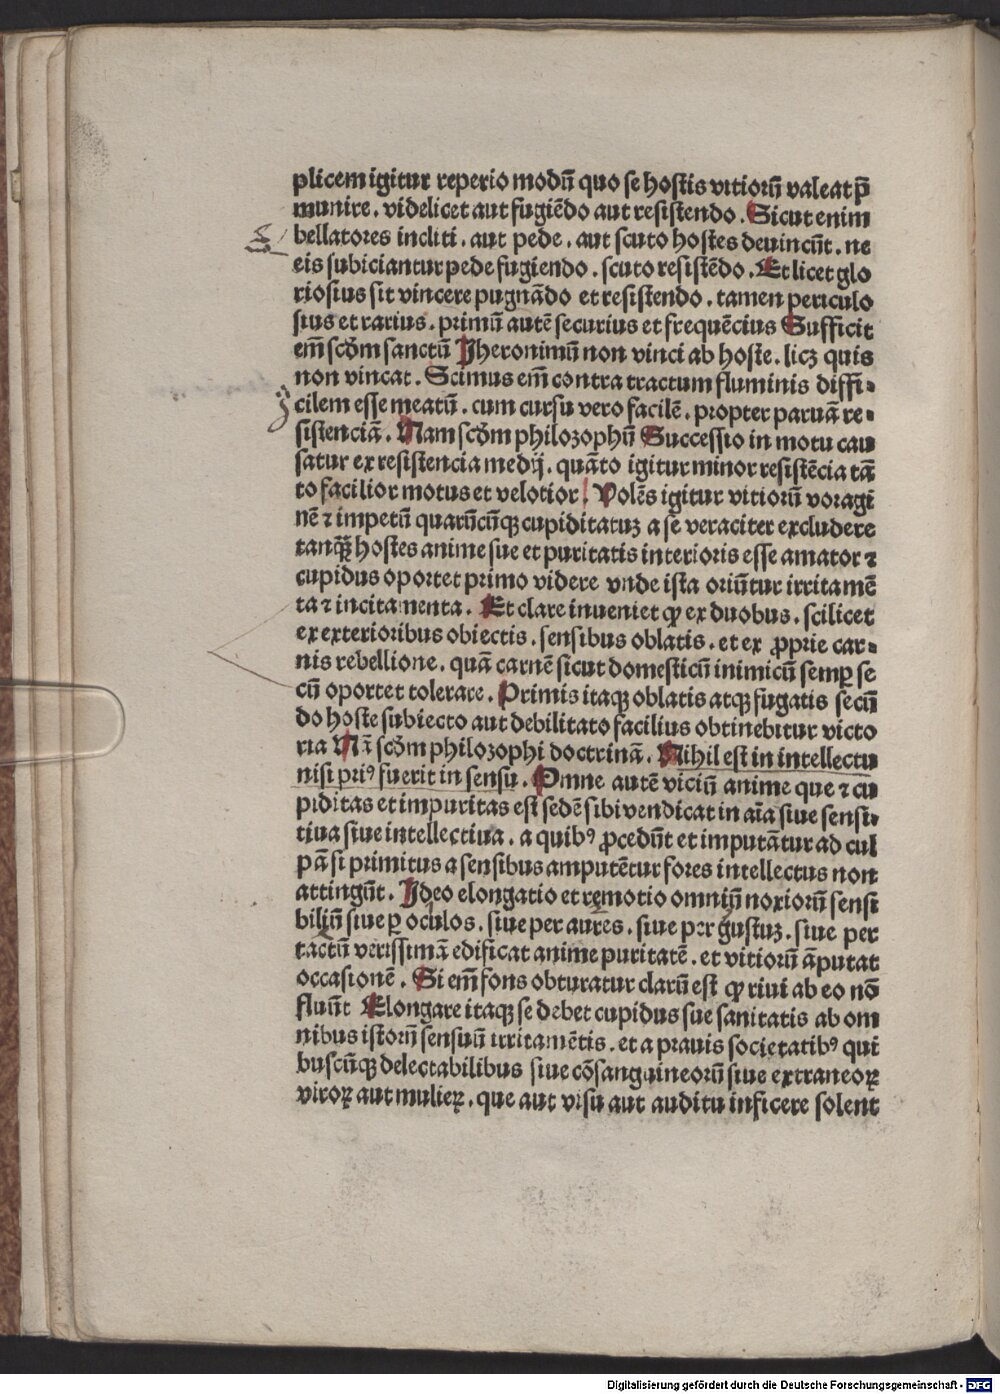 plicem igitur reperio modū quo se hostis vitiorū valeat p̄
munire . videlicet aut fugiēdo aut resistendo . Sicut enim
bellatores incliti . aut pede . aut scuto hostes deuincūt . ne
eis subiciantur pede fugiendo . scuto resistēdo . Et licet glo
riosius sit vincere pugnādo et resistendo . tamen periculo
sius et rarius . primū autē securius et frequēcius Sufficit
em̄ scd̄m sanctū Jheronimū non vinci ab hoste . licꝫ quis
non vincat . Scimus em̄ contra tractum fluminis diffi-
cilem esse meatū . cum cursu vero facilē . propter paruā re-
sistenciā . Nam scd̄m philozophū Successio in motu cau
satur ex resistencia medij . quāto igitur minor resistēcia tā
to facilior motus et velotior / Volēs igitur vitiorū voragi
nē ⁊ impetū quarūcūqꝫ cupiditatuꝫ a se veraciter excludere
tanqꝫ̄ hostes anime sue et puritatis interioris esse amator ⁊
cupidus oportet primo videre vnde ista oriūtur irritamē
ta ⁊ incitamenta . Et clare inueniet ꝙ ex duobus . scilicet
ex exterioribus obiectis . sensibus oblatis . et ex ꝓprie car-
nis rebellione . quā carnē sicut domesticū inimicū semꝑ se
cū oportet tolerare . Primis itaqꝫ oblatis atqꝫ fugatis secū
do hoste subiecto aut debilitato facilius obtinebitur victo
ria Nā scd̄m philozophi doctrinā . Nihil est in intellectu
nisi priꝰ fuerit in sensu . Omne autē viciū anime que ⁊ cu
piditas et impuritas est sedē sibi vendicat in aīa siue sensi-
tiua siue intellectiua . a quibꝰ ꝓcedūt et imputātur ad cul
pā si primitus a sensibus amputētur fores intellectus non
attingūt . Jdeo elongatio et remotio omniū noxiorū sensi
biliū siue ꝑ oculos . siue per aures . siue per gustuꝫ . siue per
tactū verissimā edificat anime puritatē . et vitiorū āputat
occasionē . Si em̄ fons obturatur clarū est ꝙ riui ab eo nō
fluūt Elongare itaqꝫ se debet cupidus sue sanitatis ab om
nibus istorū sensuū irritamētis . et a prauis societatibꝰ qui
buscūqꝫ delectabilibus siue cōsanguineorū siue extraneoꝝ
viroꝝ aut mulieꝝ . que aut visu aut auditu inficere solent
Digitalisierung gefördert durch die Deutsche Forschungsgemeinschaft - DFG